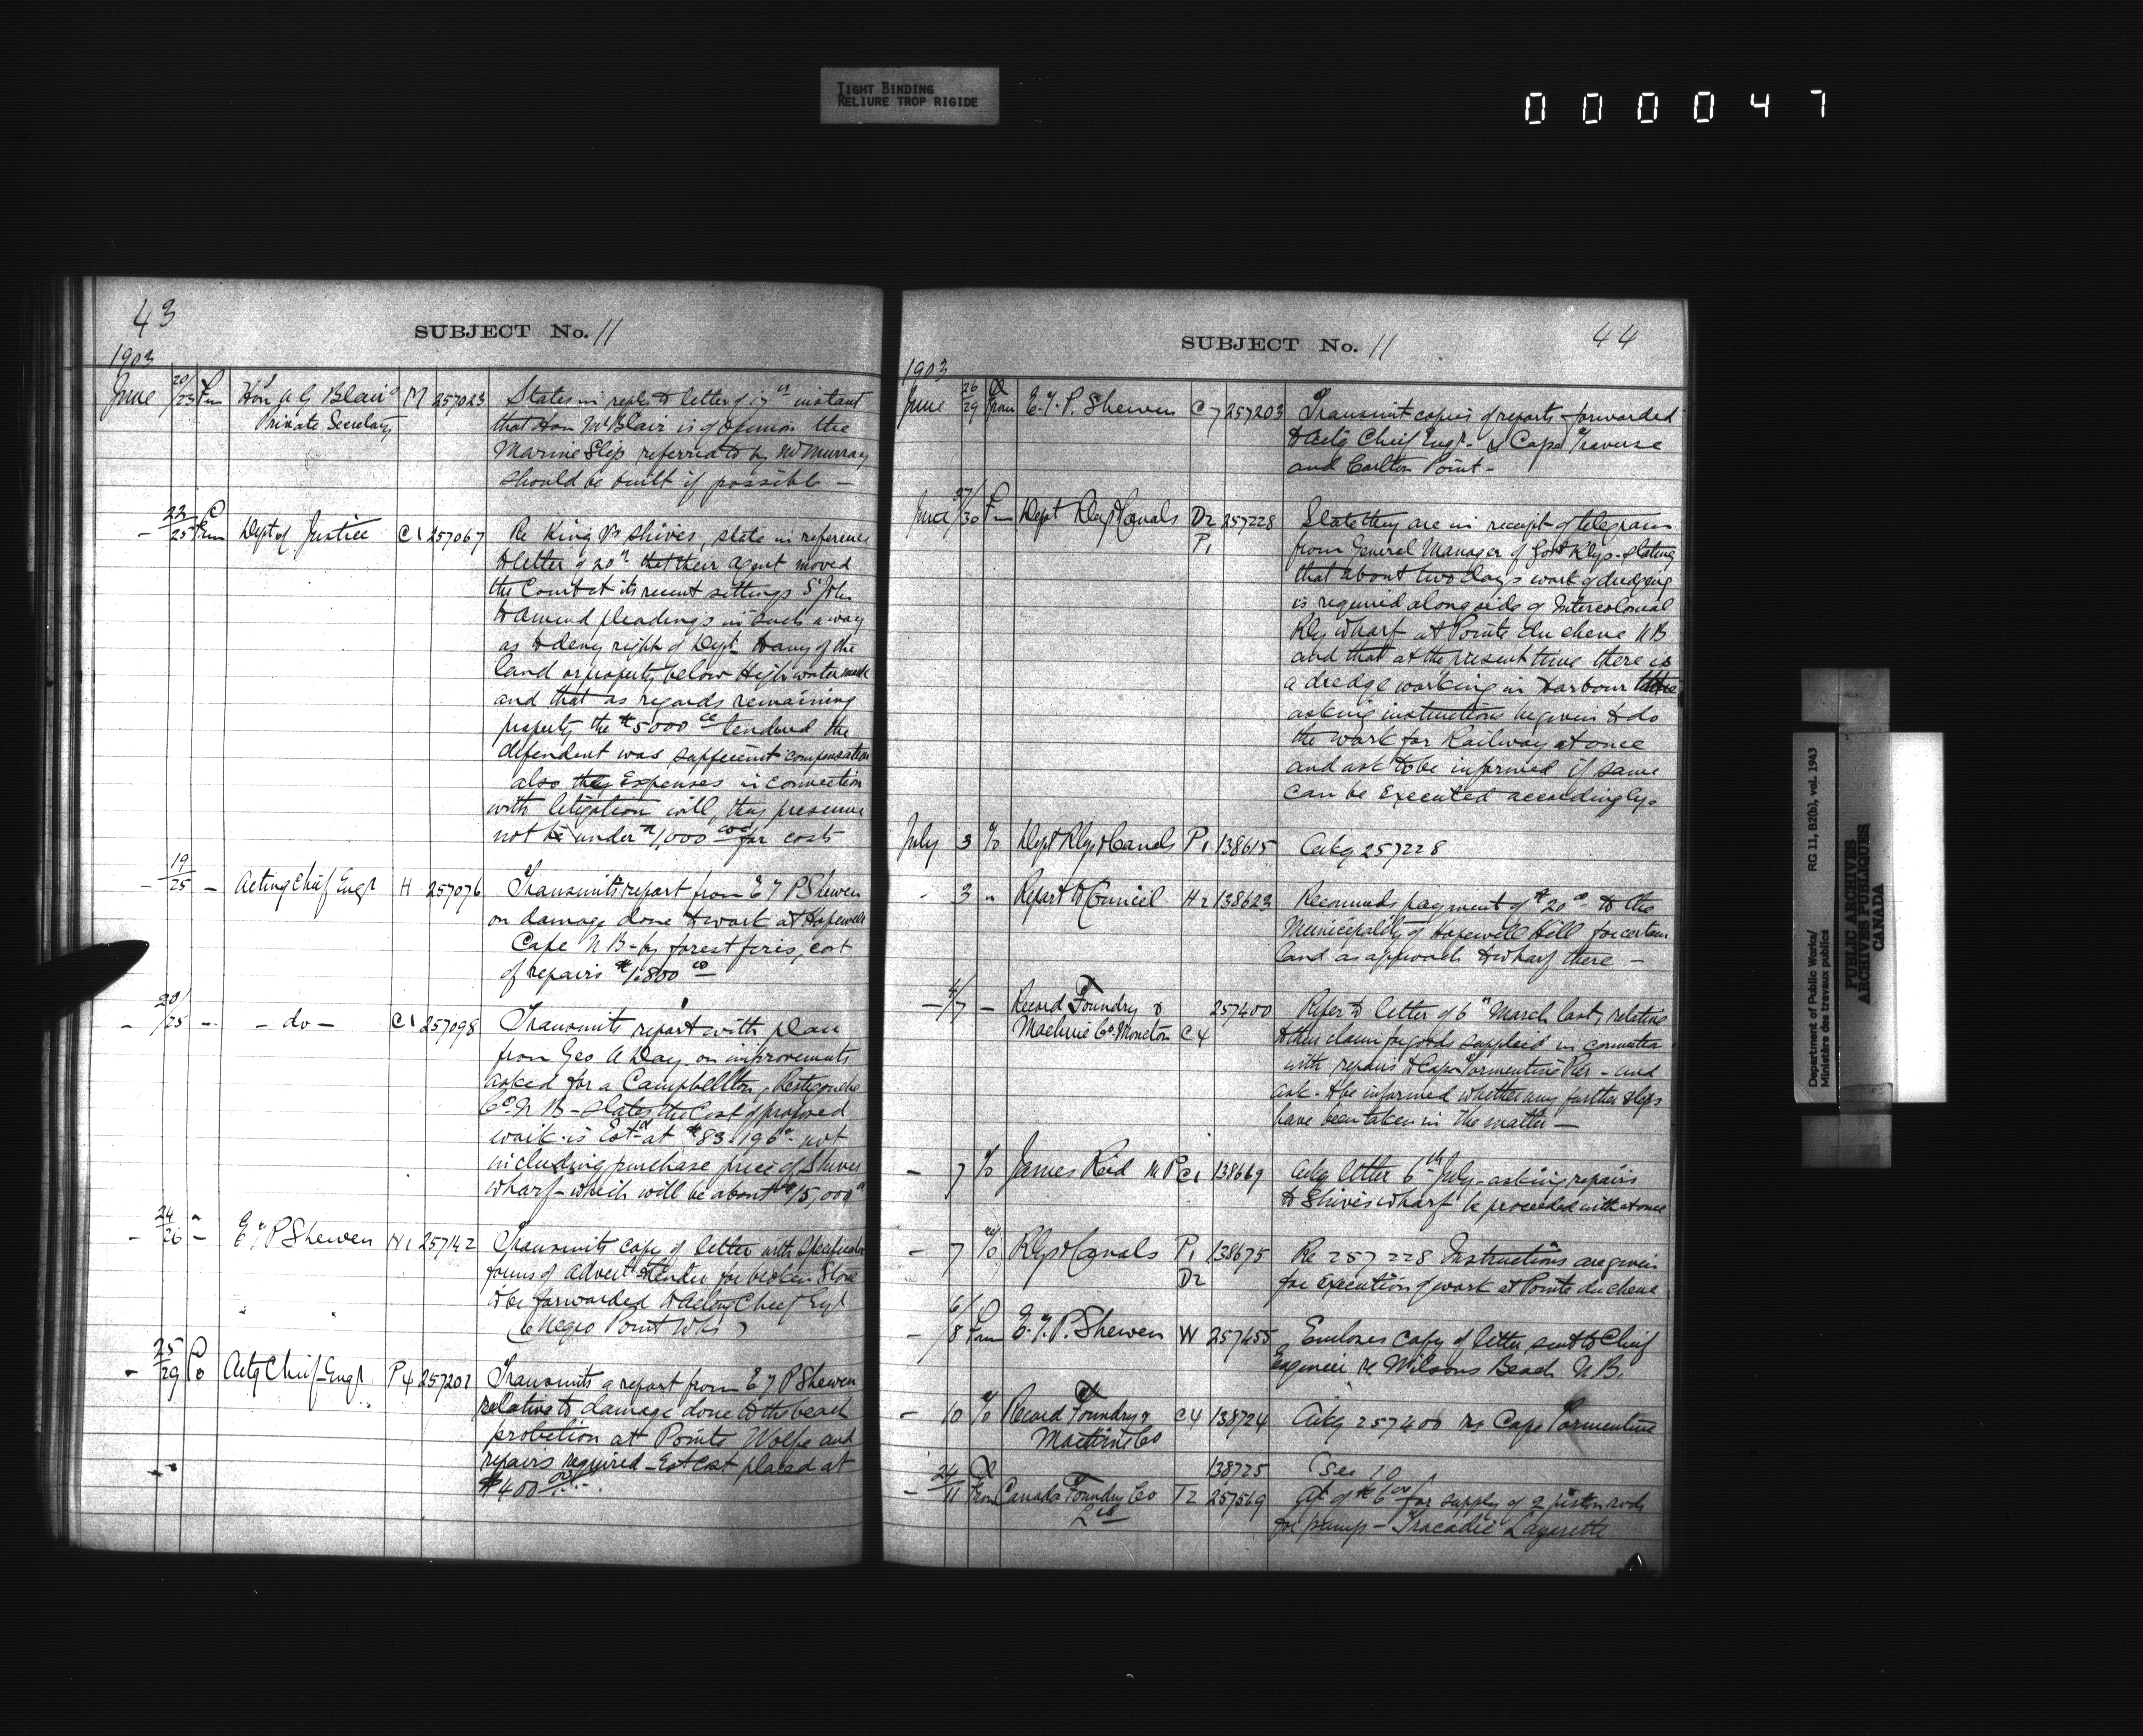 TIGHT BINDING
RELIURE TROP RIGIDE
000047
43
SUBJECT No. 11
1903
June 20/23 Fm Hon A G Blair M 257023 States in reply to letter of 17th instant
Private Secretary that Hon Mr Blair is of opinion the
Marine Slip referred to by Mr Murray
should be built if possible —
— 22/25 Fm Dept of Justice C1 257067 Re King vs Shives, state in reference
to letter of 20th that their agent moved
the Court at its recent sittings St John
to amend pleadings in such a way
as to deny right of Dept to any of the
land or property below High water mark
and that as regards remaining
property the $5000 00 tendered the
defendent was sufficient compensation
also they Expenses in connection
with litigation will, they presume
not be under $1,000 for costs
— 19/25 — Acting Chief Engr H 257076 Transmits report from E T P Shewen
on damage done to work at Hopewell
Cape N B — by forest fires, cost
of repairs $1,800 00
— 20/25 — — do — C1 257098 Transmits report with plan
from Geo A Day on improvements
asked for a Campbellton, Restigouche
Co. N B — States the cost of proposed
work is Estd at $83,196 00 not
including purchase price of Shives
wharf — which will be about $15,000 00
— 24/26 — E T P Shewen N1 257142 Transmits copy of letter with specification
forms of advert & tender for broken Stone
to be forwarded to Acting Chief Engr
(Negro Point Whf)
— 25/29 Actg Chief Engr P4 257201 Transmits a report from E T P Shewen
relative to damage done to the beach
protection at Pointe Wolfe and
repairs required — Est Cost placed at
$400 00
SUBJECT No. 11
44
1903
June 26/29 From E. T. P. Shewen C7 257203 Transmit copies of reports forwarded
to Actg Chief Engr. re Cape Traverse
and Carlton Point —
June 27/30 Fm Dept Rlys & Canals D2 257228 State they are in receipt of telegram
P1 from General Manager of Govt Rlys. stating
that about two days work of dredging
is required alongside of Intercolonial
Rly Wharf at Pointe du chene N B
and that at the present time there is
a dredge working in Harbour there
asking instructions be given to do
the work for Railway at once
and ask to be informed if same
can be Executed accordingly.
July 3 Dept Rlys & Canals P1 138615 Ackg 257228
3 " Report to Council H2 138623 Recomends payment of $20 00 to the
Municipality of Hopewell Hill for certain
land as approach to wharf there —
— 4/7 — Record Foundry & 257400 Refer to letter of 6th March last, relative
Machine Co Moncton C4 to their claim for goods supplied in connection
with repairs to Cape Tormentine Pier — and
ask to be informed whether any further steps
have been taken in the matter —
— 7 James Reid M P C1 138669 Ackg letter 6th July — asking repairs
to Shives wharf be proceeded with at once
— 7 Rlys & Canals P1 138675 Re 257228 Instructions are given
D2 for Execution of work at Pointe du chene
— 6/8 From E. T. P. Shewen W 257455 Encloses copy of letter sent to Chief
Engineer re Wilsons Beach N B.
— 10 Record Foundry & C4 138724 Ackg 257400 re Cape Tormentine
Machine Co
138725 (See 10
— 24/11 From Canada Foundry Co T2 257569 of $6 00 for supply of 2 piston rods
Ltd for pump — Tracadie Lazarette
Department of Public Works/ RG 11, B2(b), vol. 1943
Ministère des travaux publics
PUBLIC ARCHIVES
ARCHIVES PUBLIQUES
CANADA